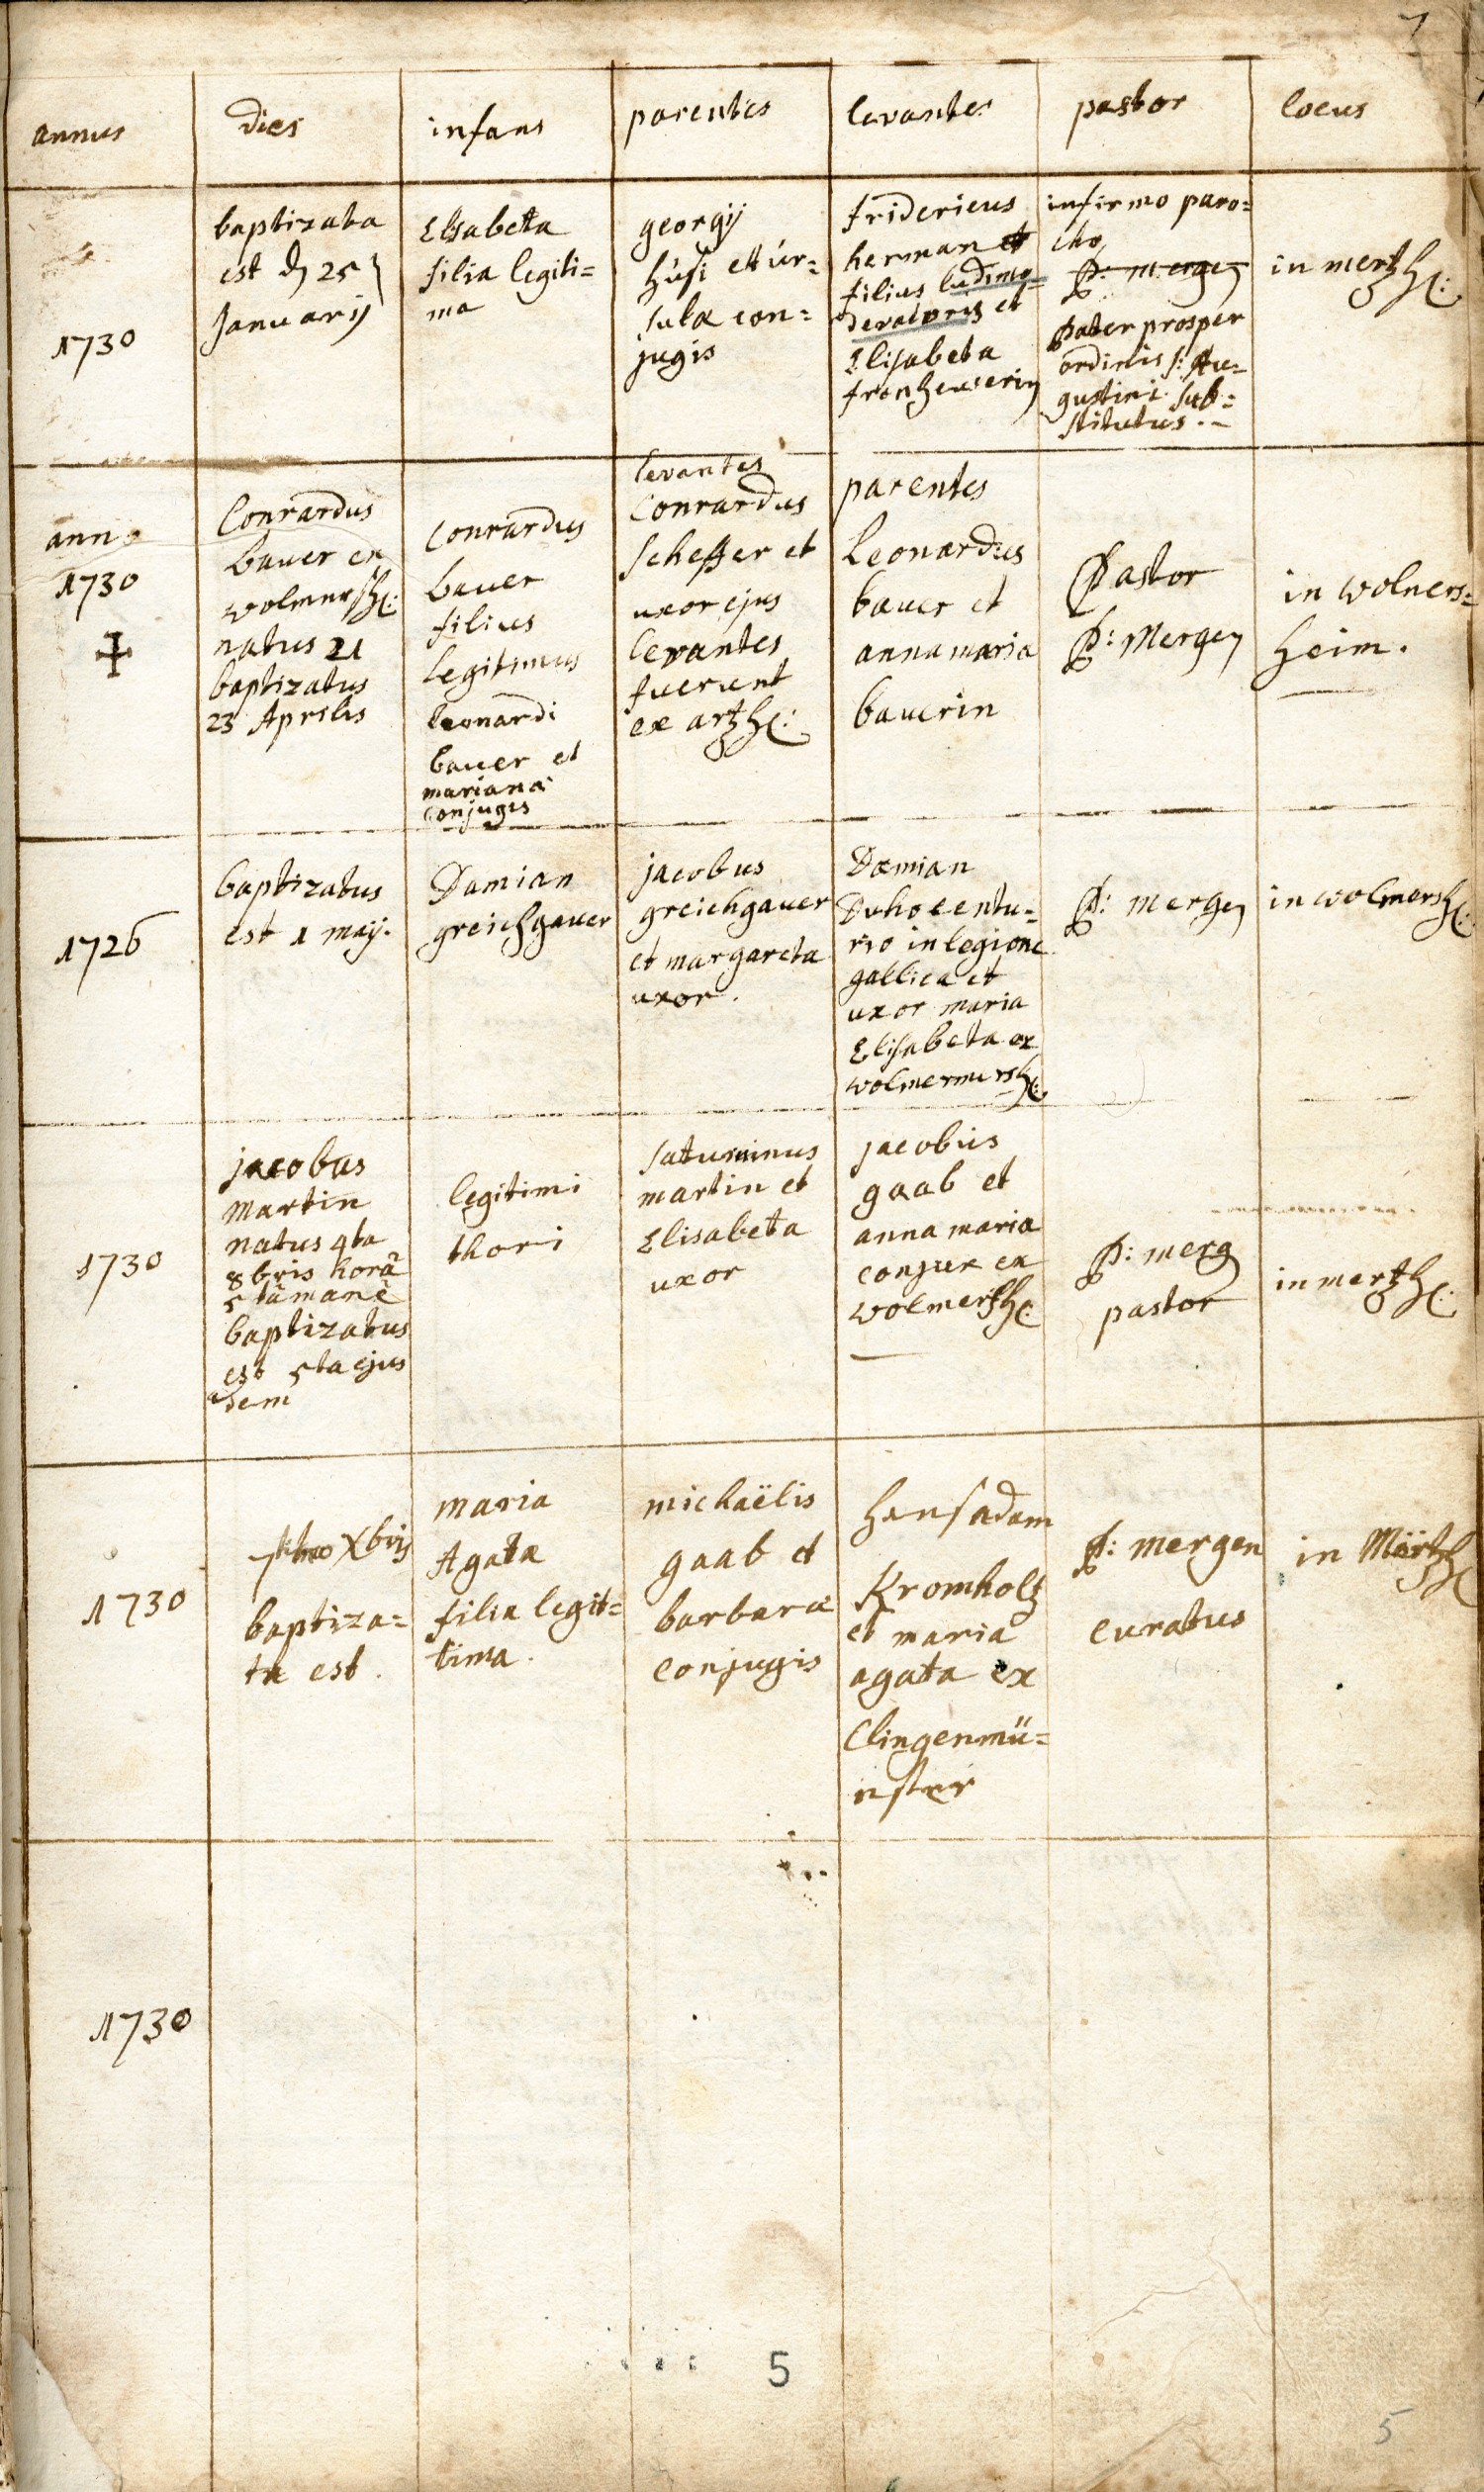 7
annus
dies
infans
parentes
levantes
pastor
locus
1730
baptizata
est d 25
Januarij
Elisabeta
filia legiti=
ma
georgij
husi et ur=
sula con=
jugis
fridericus
herman et
filius ludimo=
deratoris et
Elisabeta
fronheuserin
infirmo paro=
cho
P: mergen
Pater prosper
ordinis s: Au=
gustini sub=
stitutus.
in mertzh:
ann.
1730
Conrardus
bauer ex
wolmersh:
natus 21
baptizatus
23 Aprilis
Conrardus
bauer
filius
legitimus
leonardi
bauer et
mariana
conjuges
levantes
Conrardus
scheffer et
uxor ejus
levantes
fuerunt
ex artzh:
parentes
Leonardus
bauer et
anna maria
bauerin
Pastor
P: Mergen
in wolmers=
heim.
1726
baptizatus
est 1 maij.
Damian
greichgauer
jacobus
greichgauer
et margareta
uxor.
Damian
Duho centu=
rio in legione
gallica et
uxor maria
Elisabeta ex
wolmermersh:
P: mergen
in wolmersh:
1730
jacobus
Martin
natus 4ta
8bris horâ
5tâ manè
baptizatus
est 5ta ejus
dem
legitimi
thori
saturninus
martin et
Elisabeta
uxor
jacobus
gaab et
anna maria
conjux ex
wolmersh:
P: merg
pastor
in mertzh:
1730
Xbris
baptiza=
ta est.
maria
Agata
filia legit=
tima.
michaëlis
gaab et
barbaræ
conjugis
Hansadam
Kromholtz
et maria
agata ex
Clingenmü=
nster
P: mergen
curatus
in Märtzh
1730
5
5